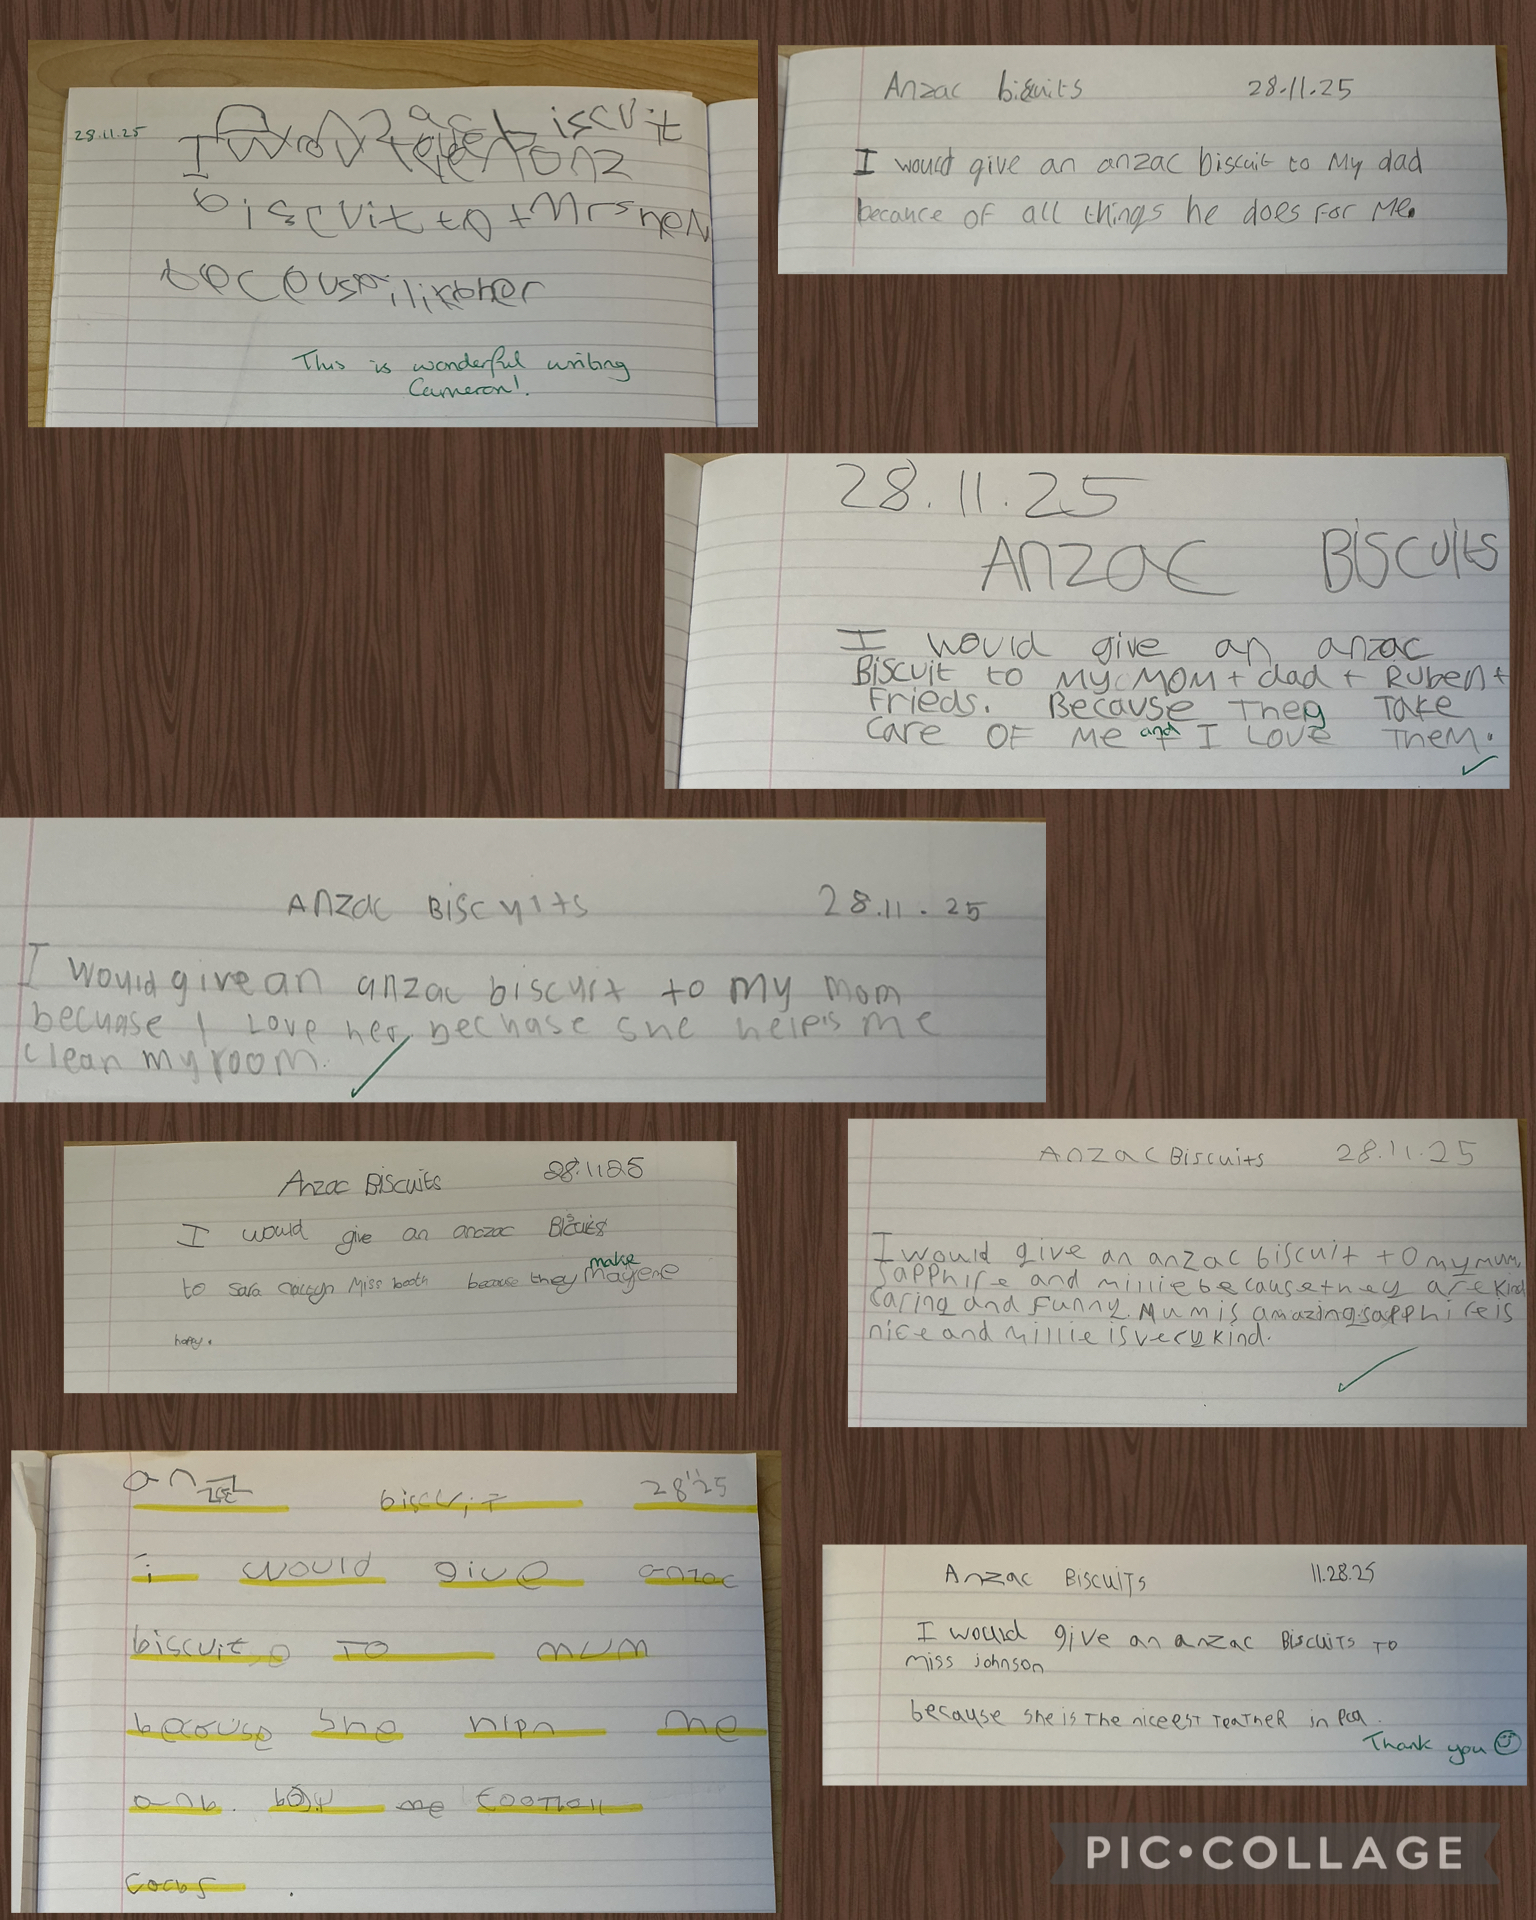 28.11.25
I would a biscuit
give
biscuit to Mrs nen
becouse i like her
This is wonderful writing
Cameron!
Anzac biscuits 28.11.25
I would give an anzac biscuit to My dad
becance of all things he does for Me.
28.11.25
Anzac Biscuits
I would give an anzac
Biscuit to My Mom + dad + Ruben +
Frieds. Because They Take
care of Me and I Love Them.
Anzac Biscuits 28.11.25
I would give an anzac biscuit to my mom
becuase I Love her, bechase she helps me
clean my room.
Anzac Biscuits 28.11.25
I would give an anozac
to sara Miss booth because they make
happy.
Anzac Biscuits 28.11.25
I would give an anzac biscuit to my mum,
sapphire and millie because they are kind
caring and Funny. Mum is amazing sapphire is
nice and Millie is very kind.
biscuit 28"25
i would give anzac
biscuit TO mum
because she hlpn me
anb. me
.
Anzac BiscuiTs 11.28.25
I would give an anzac BiscuiTs To
Miss johnson
because she is The niceest TeaTheR in pca.
Thank you
PIC•COLLAGE